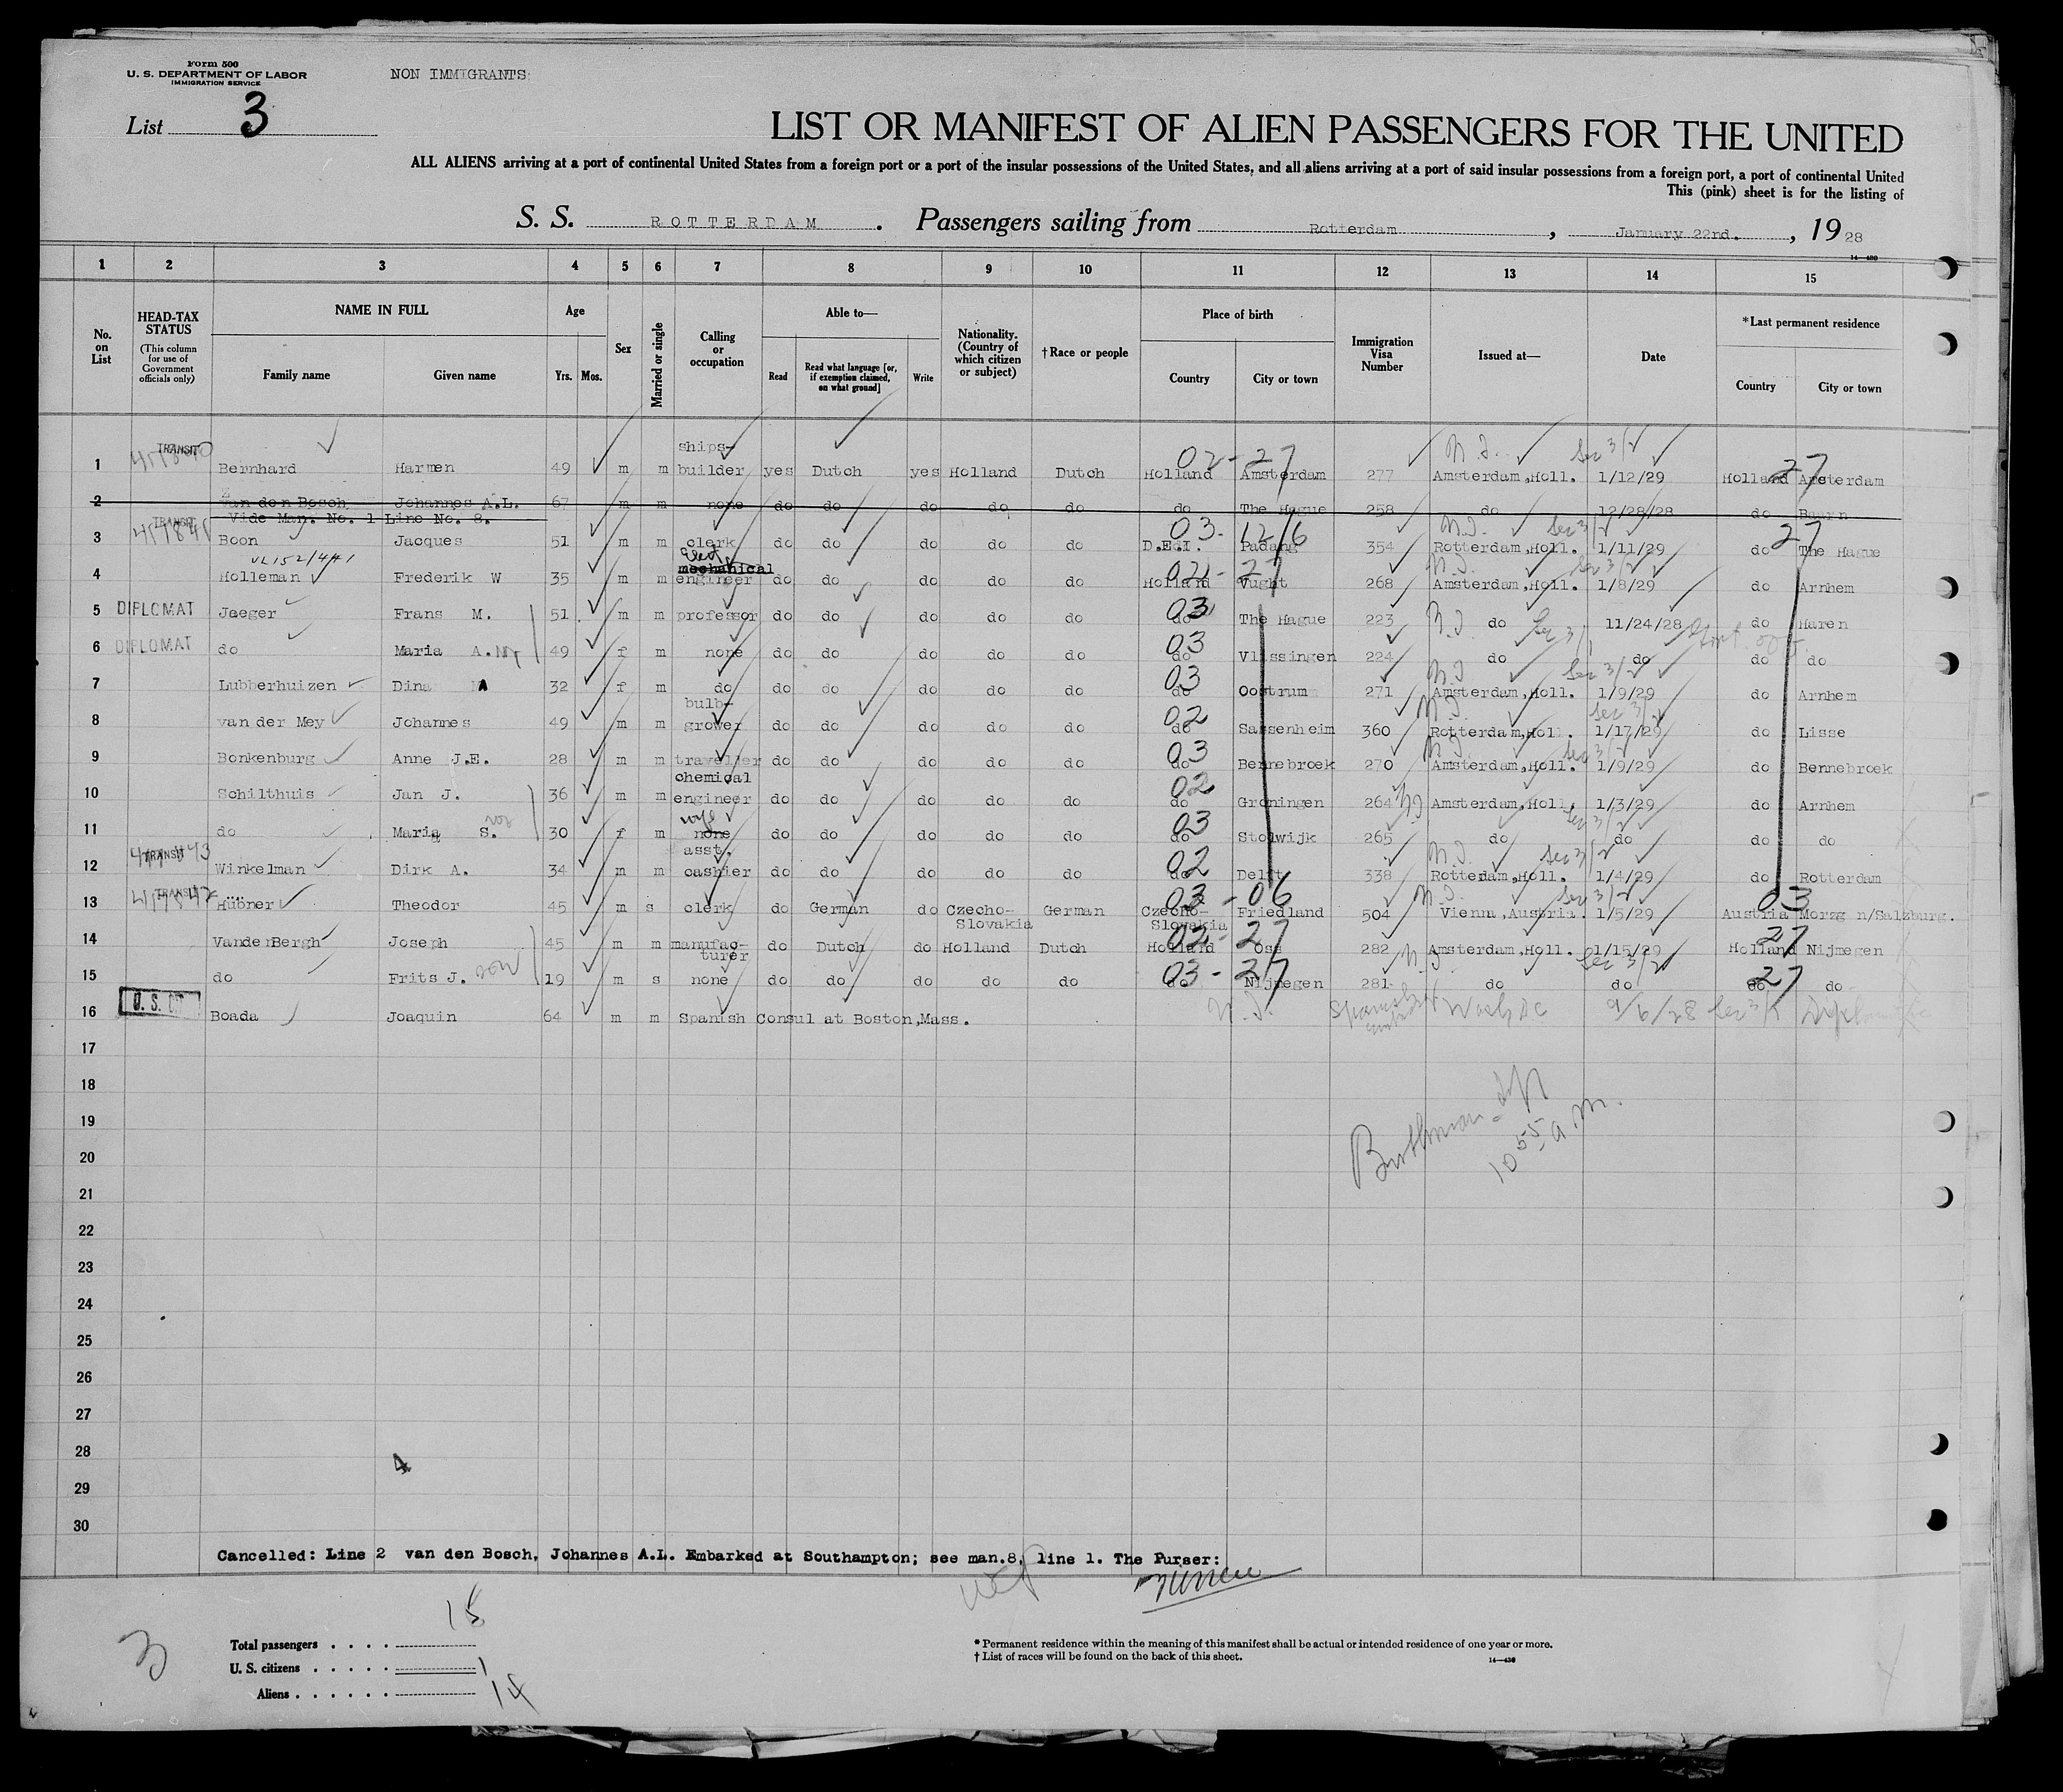 Form 500
U. S. DEPARTMENT OF LABOR
IMMIGRATION SERVICE
NON IMMIGRANTS
List 3
LIST OR MANIFEST OF ALIEN PASSENGERS FOR THE UNITED
ALL ALIENS arriving at a port of continental United States from a foreign port or a port of the insular possessions of the United States, and all aliens arriving at a port of said insular possessions from a foreign port, a port of continental United
This (pink) sheet is for the listing of
S. S. ROTTERDAM. Passengers sailing from Rotterdam, January 22nd., 1928
14—430
1 2 3 4 5 6 7 8 9 10 11 12 13 14 15
No. on List
HEAD-TAX STATUS
(This column for use of Government officials only)
NAME IN FULL
Family name Given name
Age
Yrs. Mos.
Sex
Married or single
Calling or occupation
Able to—
Read
Read what language [or, if exemption claimed, on what ground]
Write
Nationality. (Country of which citizen or subject)
†Race or people
Place of birth
Country City or town
Immigration Visa Number
Issued at—
Date
*Last permanent residence
Country City or town
1 TRANSIT Bernhard Harmen 49 m m ships-builder yes Dutch yes Holland Dutch Holland Amsterdam 277 Amsterdam,Holl. 1/12/29 Holland Amsterdam
02-27 N.I. Sec 3/2 27
2 van den Bosch Johannes A.L. 67 m m none do do do do do do The Hague 258 do 12/28/28 do Baarn
Vide Man. No. 1 Line No. 8.
3 TRANSIT Boon Jacques 51 m m clerk do do do do do D.E.I. Padang 354 Rotterdam,Holl. 1/11/29 do The Hague
03-12/6 N.I. Sec 3/2 27
4 Holleman Frederik W 35 m m Elect mechanical engineer do do do do do Holland Vught 268 Amsterdam,Holl. 1/8/29 do Arnhem
02-27
5 DIPLOMAT Jaeger Frans M. 51 m m professor do do do do do do The Hague 223 do 11/24/28 do Haren
03 N.I. Sec 3/1
6 DIPLOMAT do Maria A. 49 f m none do do do do do do Vlissingen 224 do do do do
03
7 Lubberhuizen Dina A 32 f m do do do do do do do Oostrum 271 Amsterdam,Holl. 1/9/29 do Arnhem
03 N.I. Sec 3/2
8 van der Mey Johannes 49 m m bulb-grower do do do do do do Sassenheim 360 Rotterdam,Holl. 1/17/29 do Lisse
02 N.I. Sec 3/2
9 Bonkenburg Anne J.E. 28 m m traveller do do do do do do Bennebroek 270 Amsterdam,Holl. 1/9/29 do Bennebroek
03 N.I. Sec 3/2
10 Schilthuis Jan J. 36 m m chemical engineer do do do do do do Groningen 264 Amsterdam,Holl. 1/3/29 do Arnhem
02
11 do Maria S. 30 f m wife none do do do do do do Stolwijk 265 do do do do
03 Sec 3/2
12 TRANSIT Winkelman Dirk A. 34 m m asst. cashier do do do do do do Delft 338 Rotterdam,Holl. 1/4/29 do Rotterdam
02 N.I. Sec 3/2
13 TRANSIT Hubner Theodor 45 m s clerk do German do Czecho-Slovakia German Czecho-Slovakia Friedland 504 Vienna,Austria. 1/5/29 Austria Morzg n/Salzburg.
03-06 N.I. Sec 3/2 03
14 VandenBergh Joseph 45 m m manufac-turer do Dutch do Holland Dutch Holland Oss 282 Amsterdam,Holl. 1/15/29 Holland Nijmegen
02-27 27
15 do Frits J. son 19 m s none do do do do do do Nijmegen 281 do do do do
03-27 N.I. Sec 3/2 27
16 Boada Joaquin 64 m m Spanish Consul at Boston,Mass. N.I. Wash DC 9/6/28 Sec 3/1
17
18
19
20
21
22
23
24
25
26
27
28
29
30
10 55 a.m.
4
Cancelled: Line 2 van den Bosch, Johannes A.L. Embarked at Southampton; see man.8, line 1. The Purser:
3
Total passengers 15
U. S. citizens 1
Aliens 14
* Permanent residence within the meaning of this manifest shall be actual or intended residence of one year or more.
† List of races will be found on the back of this sheet.
14—430